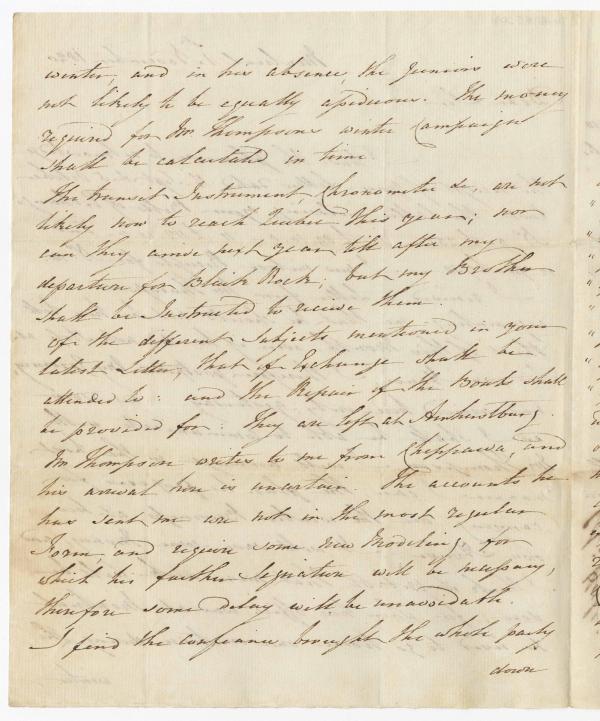 winter, and in his absence, the Juniors were
not likely to be equally assiduous. The money
required for Mr Thompsons winter Campaign
shall be calculated in time
The transit Instrument, Chronometer &c, are not
likely now to reach Quebec this year; nor
can they arrive next year till after my
departure for Black Rock; but my Brother
shall be Instructed to receive them.
Of the different Subjects mentioned in your
latest Letter, that of Exchange shall be
attended to: and the Repair of the Boats shall
be provided for: They are left at Amherstburg.
Mr Thompson writes to me from Chippawa, and
his arrival here is uncertain. The accounts he
has sent me are not in the most regular
Form and require some new modeling, for
which his further Signature will be necessary,
therefore some delay will be unavoidable.
I find the conference brought the whole party
down